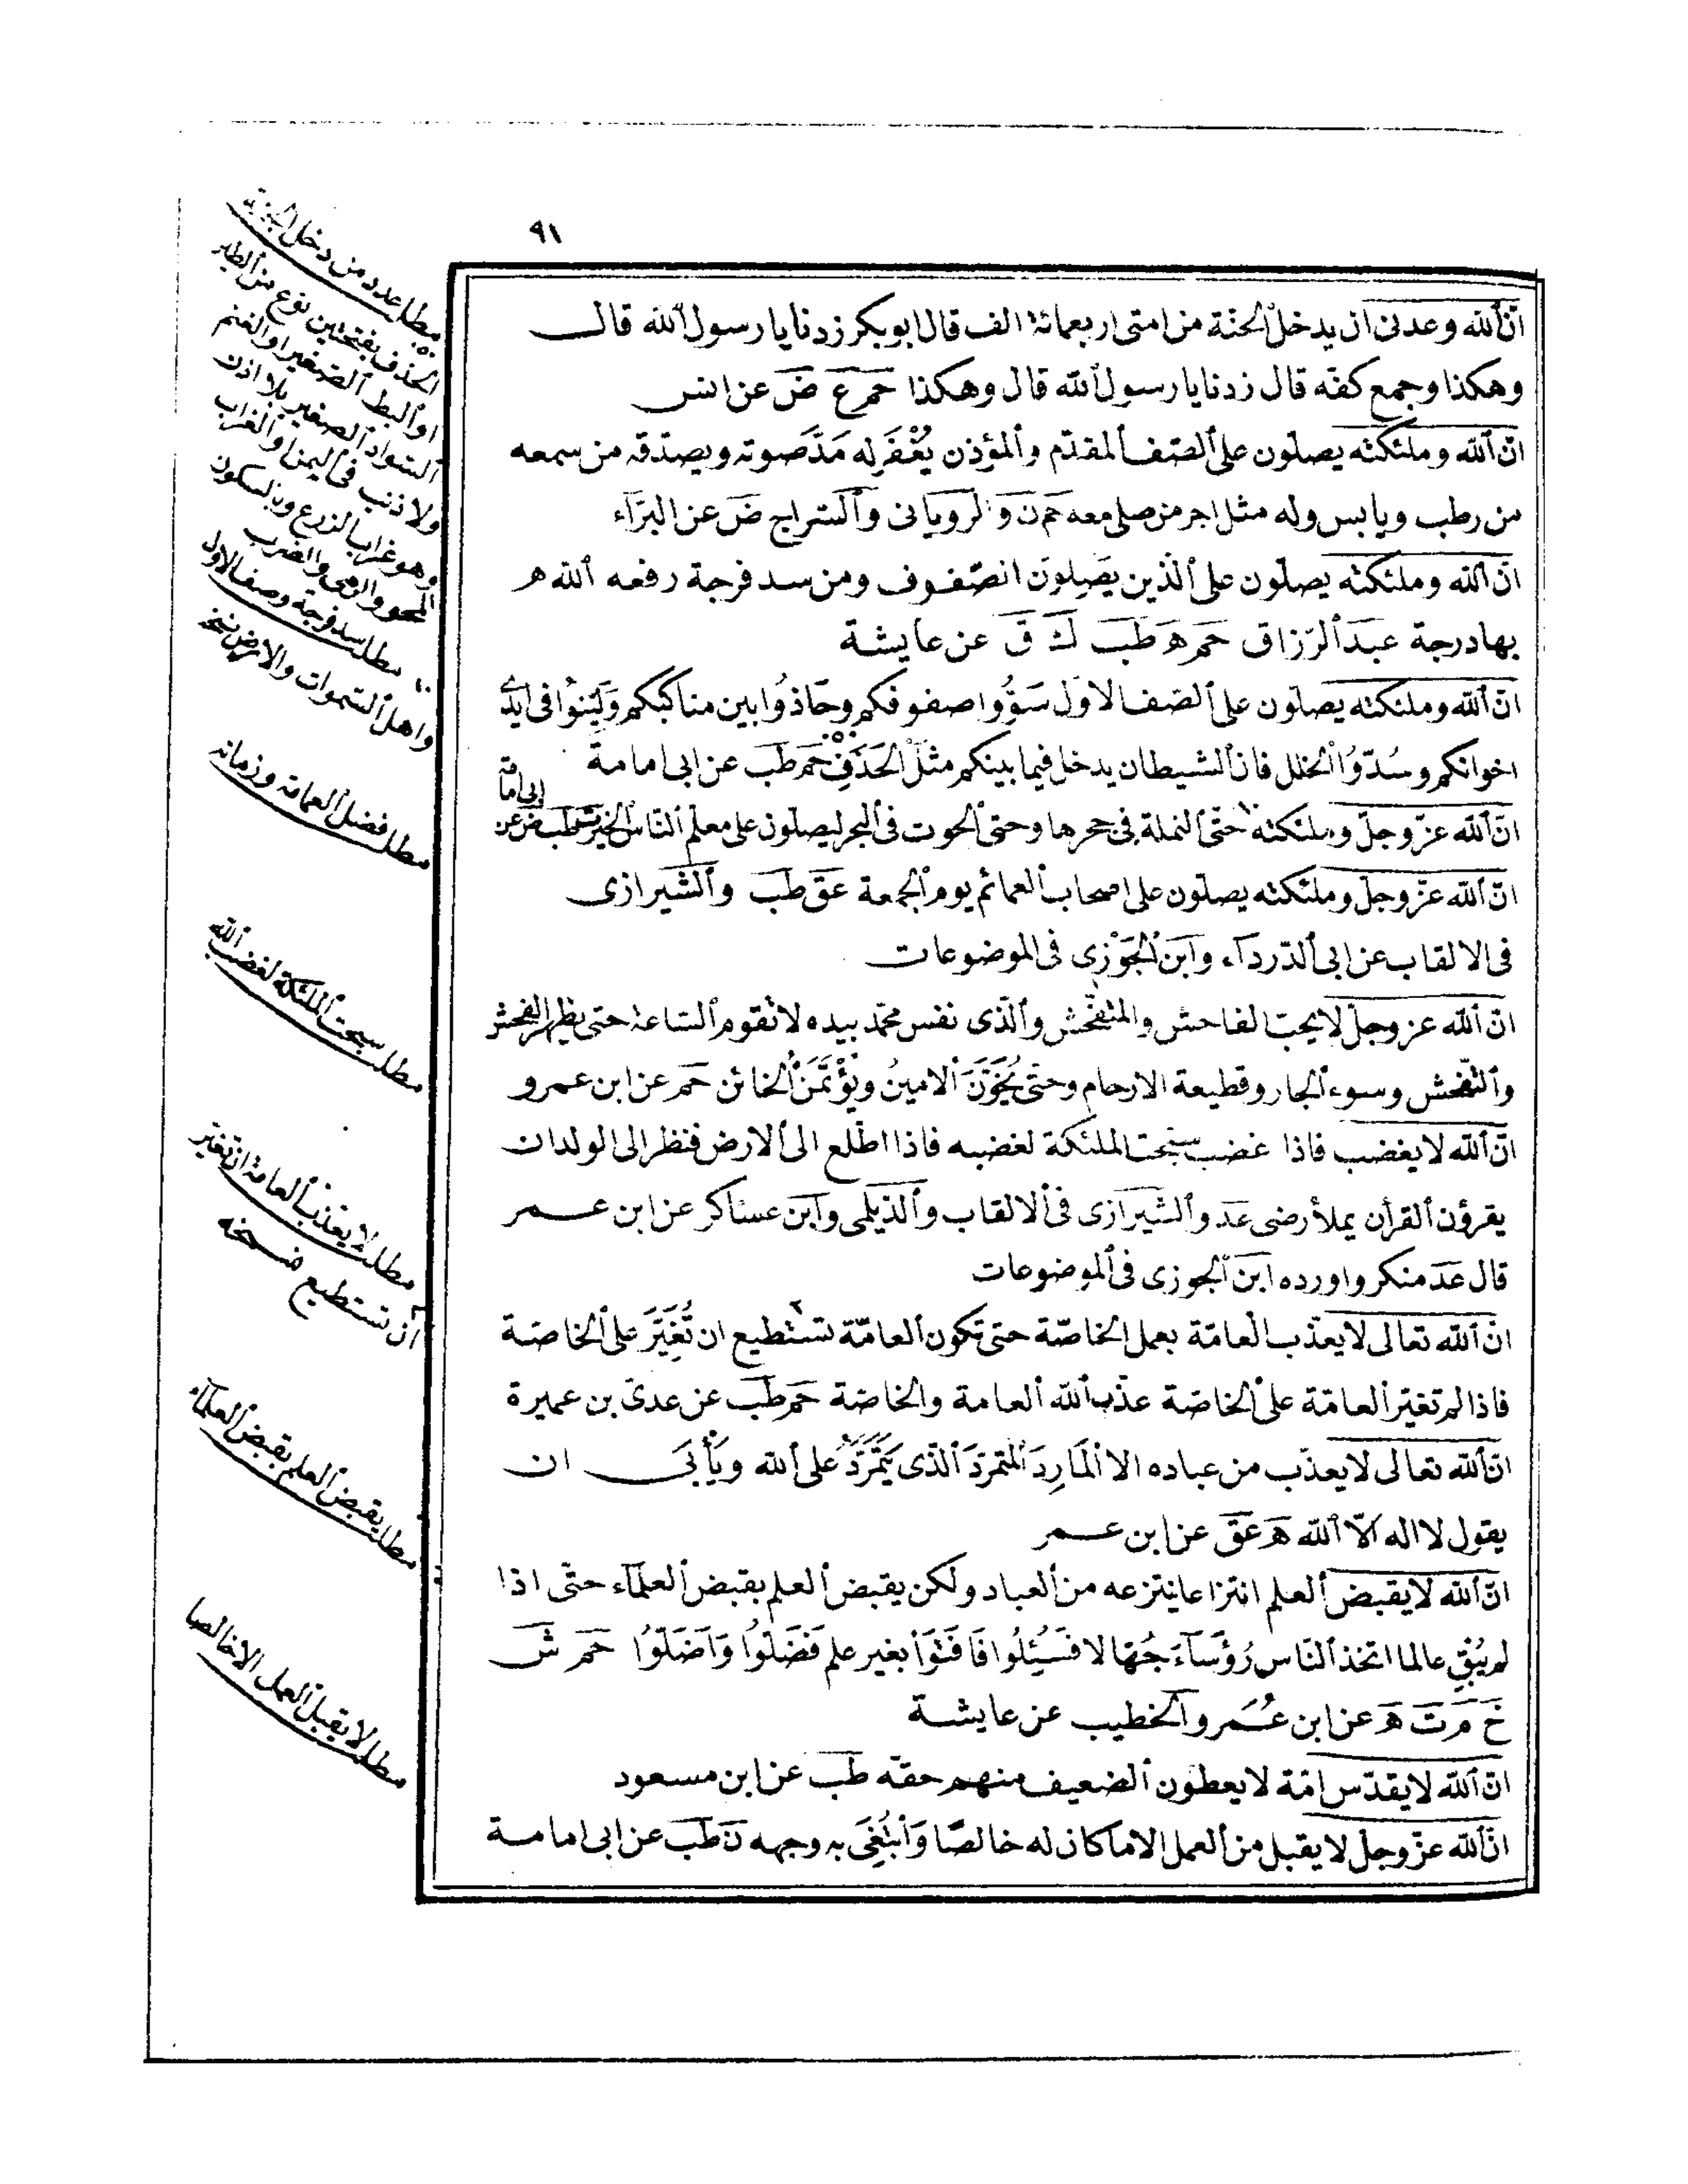 ٩١
انّ الله وعدنى ان يدخل الجنّة من امتى اربعمائة الف قال ابوبكر زدنا يا رسول الله قال
وهكذا وجمع كفّه قال زدنا يا رسول الله قال وهكذا حم ع ض عن انس
انّ الله وملئكته يصلّون على الصّف المقدّم والمؤذن يُغْفَر له مَدَّ صوته ويصدّقه من سمعه
من رطب ويابس وله مثل اجر من صلى معه حم ن والرويانى والسّراج ض عن البرّاء
انّ الله وملئكته يصلّون على الّذين يَصِلون الصّفوف ومن سد فرجة رفعه الله ه
بها درجة عبد الرّزاق حم ه طب ك ق عن عايشة
انّ الله وملئكته يصلّون على الصّف الاوّل سَوُّوا صفوفكم وحَاذُوا بين مناكبكم وَلَيِّنُوا فى ايدى
اخوانكم وسُدُّوُا الخلل فانّ الشيطان يدخل فيما بينكم مثل الحَذَفِ حم طب عن ابى امامة
انّ الله عزّ وجلّ وملئكته حتّى النملة فى حجرها وحتى الحوت فى البحر ليصلّون على معلم النّاس الخير طب ض عن
ابى امامة
انّ الله عزّ وجلّ وملئكته يصلّون على اصحاب العمائم يوم الجمعة عق طب والشيرازى
فى الالقاب عن ابى الدّرداء وابن الجَوْزى فى الموضوعات
انّ الله عز وجلّ لا يحبّ الفاحش والمتفحّش والّذى نفس محمّد بيده لا تقوم السّاعة حتى يظهر الفحش
والتّفحّش وسوء الجار وقطيعة الارحام وحتّى يُخَوَّنَ الامينُ ويُؤْتَمَنَ الخائن حم عن ابن عمرو
انّ الله لا يغضب فاذا غضب سبّحت الملئكة لغضبه فاذا اطّلع الى الارض فنظر الى الولدان
يقرؤن القرأن يملأ رضى عد والشيرازى فى الالقاب والدّيلمى وابن عساكر عن ابن عمر
قال عد منكر واورده ابن الجوزى فى الموضوعات
انّ الله تعالى لا يعذّب العامّة بعمل الخاصّة حتى تكون العامّة تستطيع ان تُغَيِّرَ على الخاصّة
فاذا لم تغيّر العامّة على الخاصّة عذّب الله العامة والخاصّة حم طب عن عدىّ بن عميرة
انّ الله تعالى لا يعذّب من عباده الا المَارِدَ المتمرّدَ الّذى يَتَمَّرَدُ على الله ويَأْبَى ان
يقول لا اله الّا الله ه عق عن ابن عمر
انّ الله لا يقبض العلم انتزاعا ينتزعه من العباد ولكن يقبض العلم بقبض العلماء حتّى اذا
لم يُبْقِ عالما اتخذ النّاس رُؤَسَاءَ جُهّالا فَسُئِلُوا فَأَفْتَوْا بغير علم فَضَلّوُا وَاَضَلّوُا حم ش
خ م ت ه عن ابن عُمَر والخطيب عن عايشة
انّ الله لا يقدّس امّة لا يعطون الضعيف منهم حقّه طب عن ابن مسعود
انّ الله عزّ وجلّ لا يقبل من العمل الا ما كان له خالصًا وَابْتُغِىَ به وجهه ن طب عن ابى امامة
مطلب عدد من دخل الجنة
الحذف بفتحتين نوع من الطير
او البط الصغير او الغنم
السواد الصغير بلا اذن
ولا ذنب فى اليمن والغراب
وهو غراب الزرع وبالسكون
المحو والرمى والضرب
مطلب سد فرجة وصف الاول
واهل السّموات والارض نسخه
مطلب فضل العمامة وزمانه
مطلب سبحت الملئكة لغضب الله
مطلب لا يعذب العامة ان تغيّر
ان تستطيع نسخه
مطلب يقبض العلم بقبض العلماء
مطلب لا يقبل العمل الا خالصا